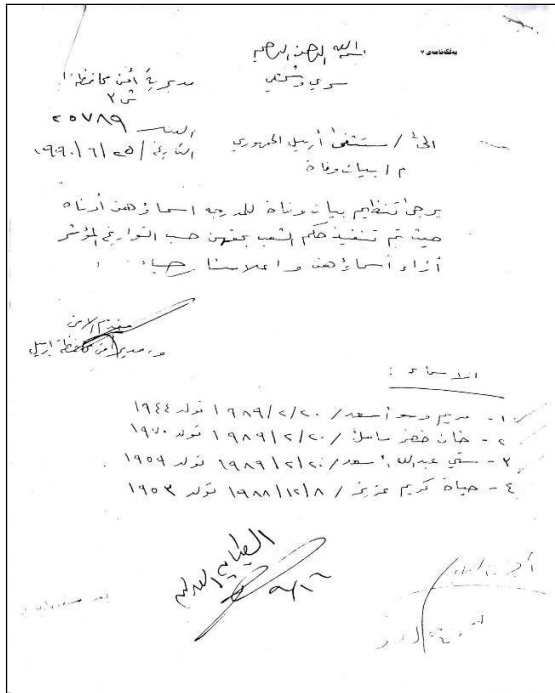 بەڵگەنامەی ٢
بسم الله الرحمن الرحيم
سري وشخصي
مديرية أمن محافظة
ش ٢
العدد ٢٥٧٨٩
التاريخ / ٢٥ / ٦ / ١٩٩٠
الى / مستشفى أربيل الجمهوري
م / بيان وفاة
يرجى تنظيم بيان وفاة للمدرجة اسماؤهن أدناه
حيث تم تنفيذ حكم الشعب بحقهن حسب التواريخ المؤشر
أزاء أسماؤهن واعلامنا رجاء
مقدم الامن
و. مدير أمن محافظة اربيل
الاسماء :
١ - مريم وسو أسعد / ٢٠ / ٢ / ١٩٨٩ تولد ١٩٤٤
٢ - خان خضر / ٢٠ / ٢ / ١٩٨٩ تولد ١٩٧٠
٣ - ستي عبدالله أسعد / ٢٠ / ٢ / ١٩٨٩ تولد ١٩٥٩
٤ - حياة كريم عزيز / ٨ / ١٢ / ١٩٨٨ تولد ١٩٥٣